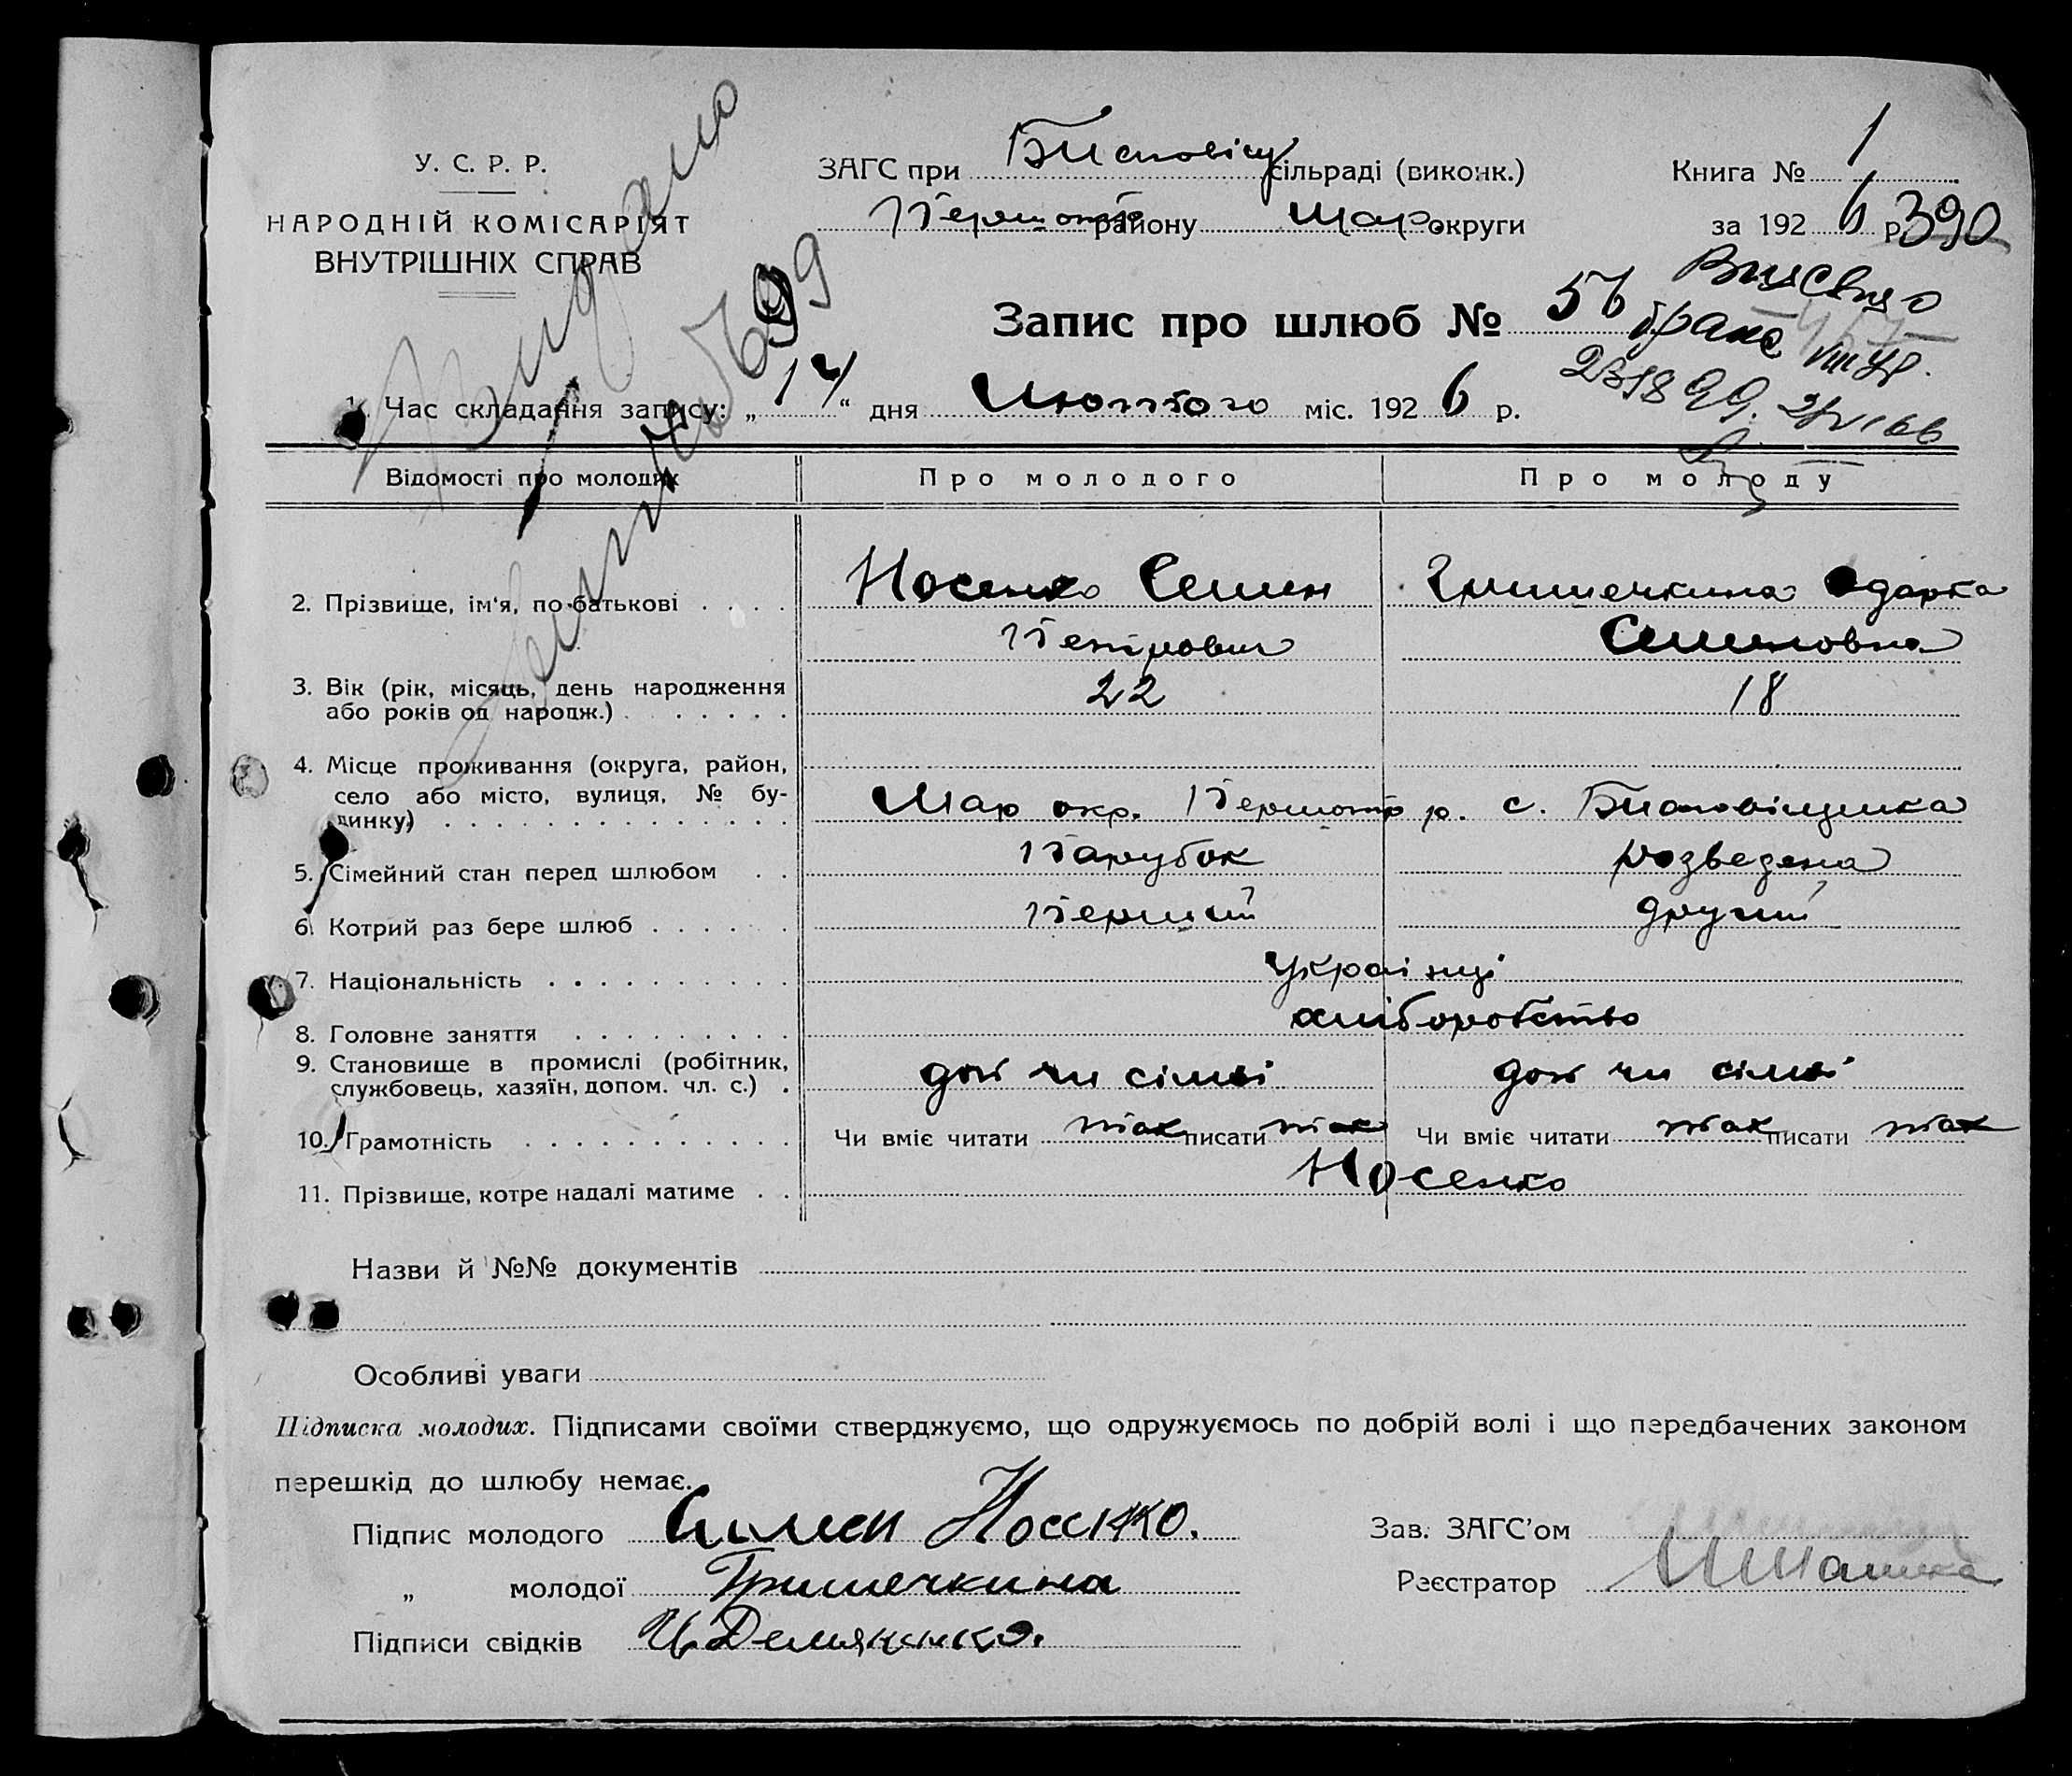 У. С. Р. Р.
НАРОДНІЙ КОМІСАРІЯТ
ВНУТРІШНІХ СПРАВ
Видано
ЗАГС при сільраді (виконк.)
району Мар. округи
Книга № 1
за 1926 р. 390
Запис про шлюб № 56
1. Час складання запису: „14“ дня Лютого міс. 1926 р.
Відомості про молодих Про молодого Про молоду
2. Прізвище, ім'я, по-батькові . . . . Носенко Семен Гришечкина Одарка
Петрович Семеновна
3. Вік (рік, місяць, день народження
або років од народж.) . . . . . . 22 18
4. Місце проживання (округа, район,
село або місто, вулиця, № бу-
динку) . . . . . . . . . . . . . Мар окр. р. с.
5. Сімейний стан перед шлюбом . . Парубок розведена
6. Котрий раз бере шлюб . . . . . . Перший другий
7. Національність . . . . . . . . . . Українці
8. Головне заняття . . . . . . . . . хліборобство
9. Становище в промислі (робітник,
службовець, хазяїн, допом. чл. с.) . доп чл сімьі доп чл сімьі
10. Грамотність . . . . . . . . . . . Чи вміє читати так писати так Чи вміє читати так писати так
11. Прізвище, котре надалі матиме . . Носенко
Назви й №№ документів
Особливі уваги
Підписка молодих. Підписами своїми стверджуємо, що одружуємось по добрій волі і що передбачених законом
перешкід до шлюбу немає.
Підпис молодого Семен Носенко.
„ молодої Гришечкина
Підписи свідків
Зав. ЗАГС'ом
Реєстратор